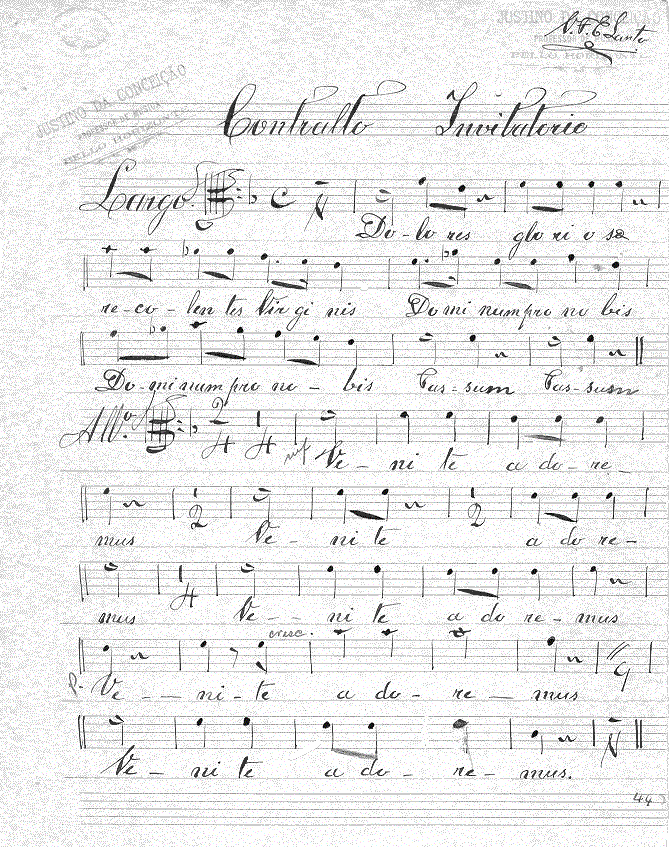 JUSTINO DA CONCEIÇÃO
JUSTINO DA CONCEIÇÃO
PROFESSOR
BELLO HORIZONTE
BELLO HORIZONTE
Contralto Invitatorio
Largo. C
Do-lo res glo ri o sa
re-co-len tes Vir gi nis Do mi num pro no bis
Do-mi num pro no-bis Pas-sum Pas-sum
All.º 2/4 4 mf Ve-ni te a do-re-
mus 2 Ve-ni te 2 a do re-
mus 4 Ve--ni te a do re-mus
cresc.
p. Ve---ni-te a do-re-mus 9
Ve-ni te a do-re-mus.
44